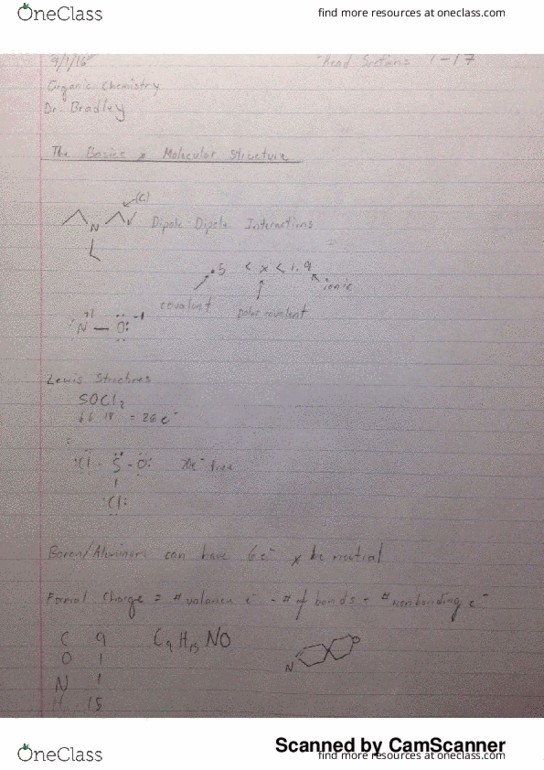 OneClass
find more resources at oneclass.com
9/1/16
Read Sections 1-17
Organic Chemistry
Dr. Bradley
The Basics Molecular Structure
(C)
N
Dipole-Dipole Interactions
.5 < x < 1.9
ionic
covalent
polar covalent
N — O:
Lewis Structures
SOCl2
6 6 14 = 26 e-
:Cl - S - O:
:Cl:
Boron/Aluminum can have 6e- & be neutral
Formal Charge = # valence e- - # of bonds - # nonbonding e-
C 9
C9H15NO
O 1
N
N 1
H 15
Scanned by CamScanner
OneClass
find more resources at oneclass.com